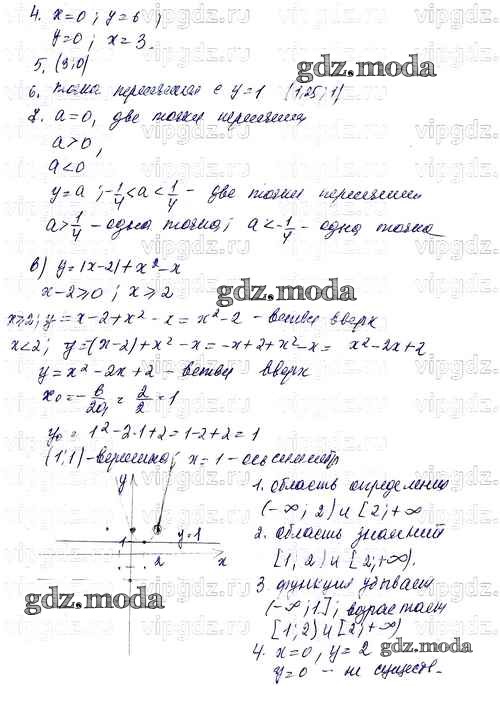 4. x=0; y=6;
y=0; x=3.
5. (3;0)
6. точка пересечения с y=1 (1,25; 1)
7. a=0, две точки пересечения
a>0,
a<0
y=a; -1/4<a<1/4 - две точки пересечения
a>1/4 - одна точка; a<-1/4 - одна точка
в) y=|x-2|+x²-x
x-2⩾0; x⩾2
x⩾2; y=x-2+x²-x=x²-2 - ветви вверх
x<2; y=(x-2)+x²-x=-x+2+x²-x= x²-2x+2
y=x²-2x+2 - ветви вверх
x₀=-в/2a=2/2=1
y₀=1²-2·1+2=1-2+2=1
(1;1) - вершина; x=1 - ось симметр
y
1
y=1
2
x
1. область определения
(-∞; 2) и [2;+∞
2. область значений
[1; 2) и [2;+∞).
3. функция убывает
(-∞;1]; возрастает
[1;2) и [2;+∞)
4. x=0, y=2
y=0 - не существ.
gdz.moda
gdz.moda
gdz.moda
gdz.moda
vipgdz.ru